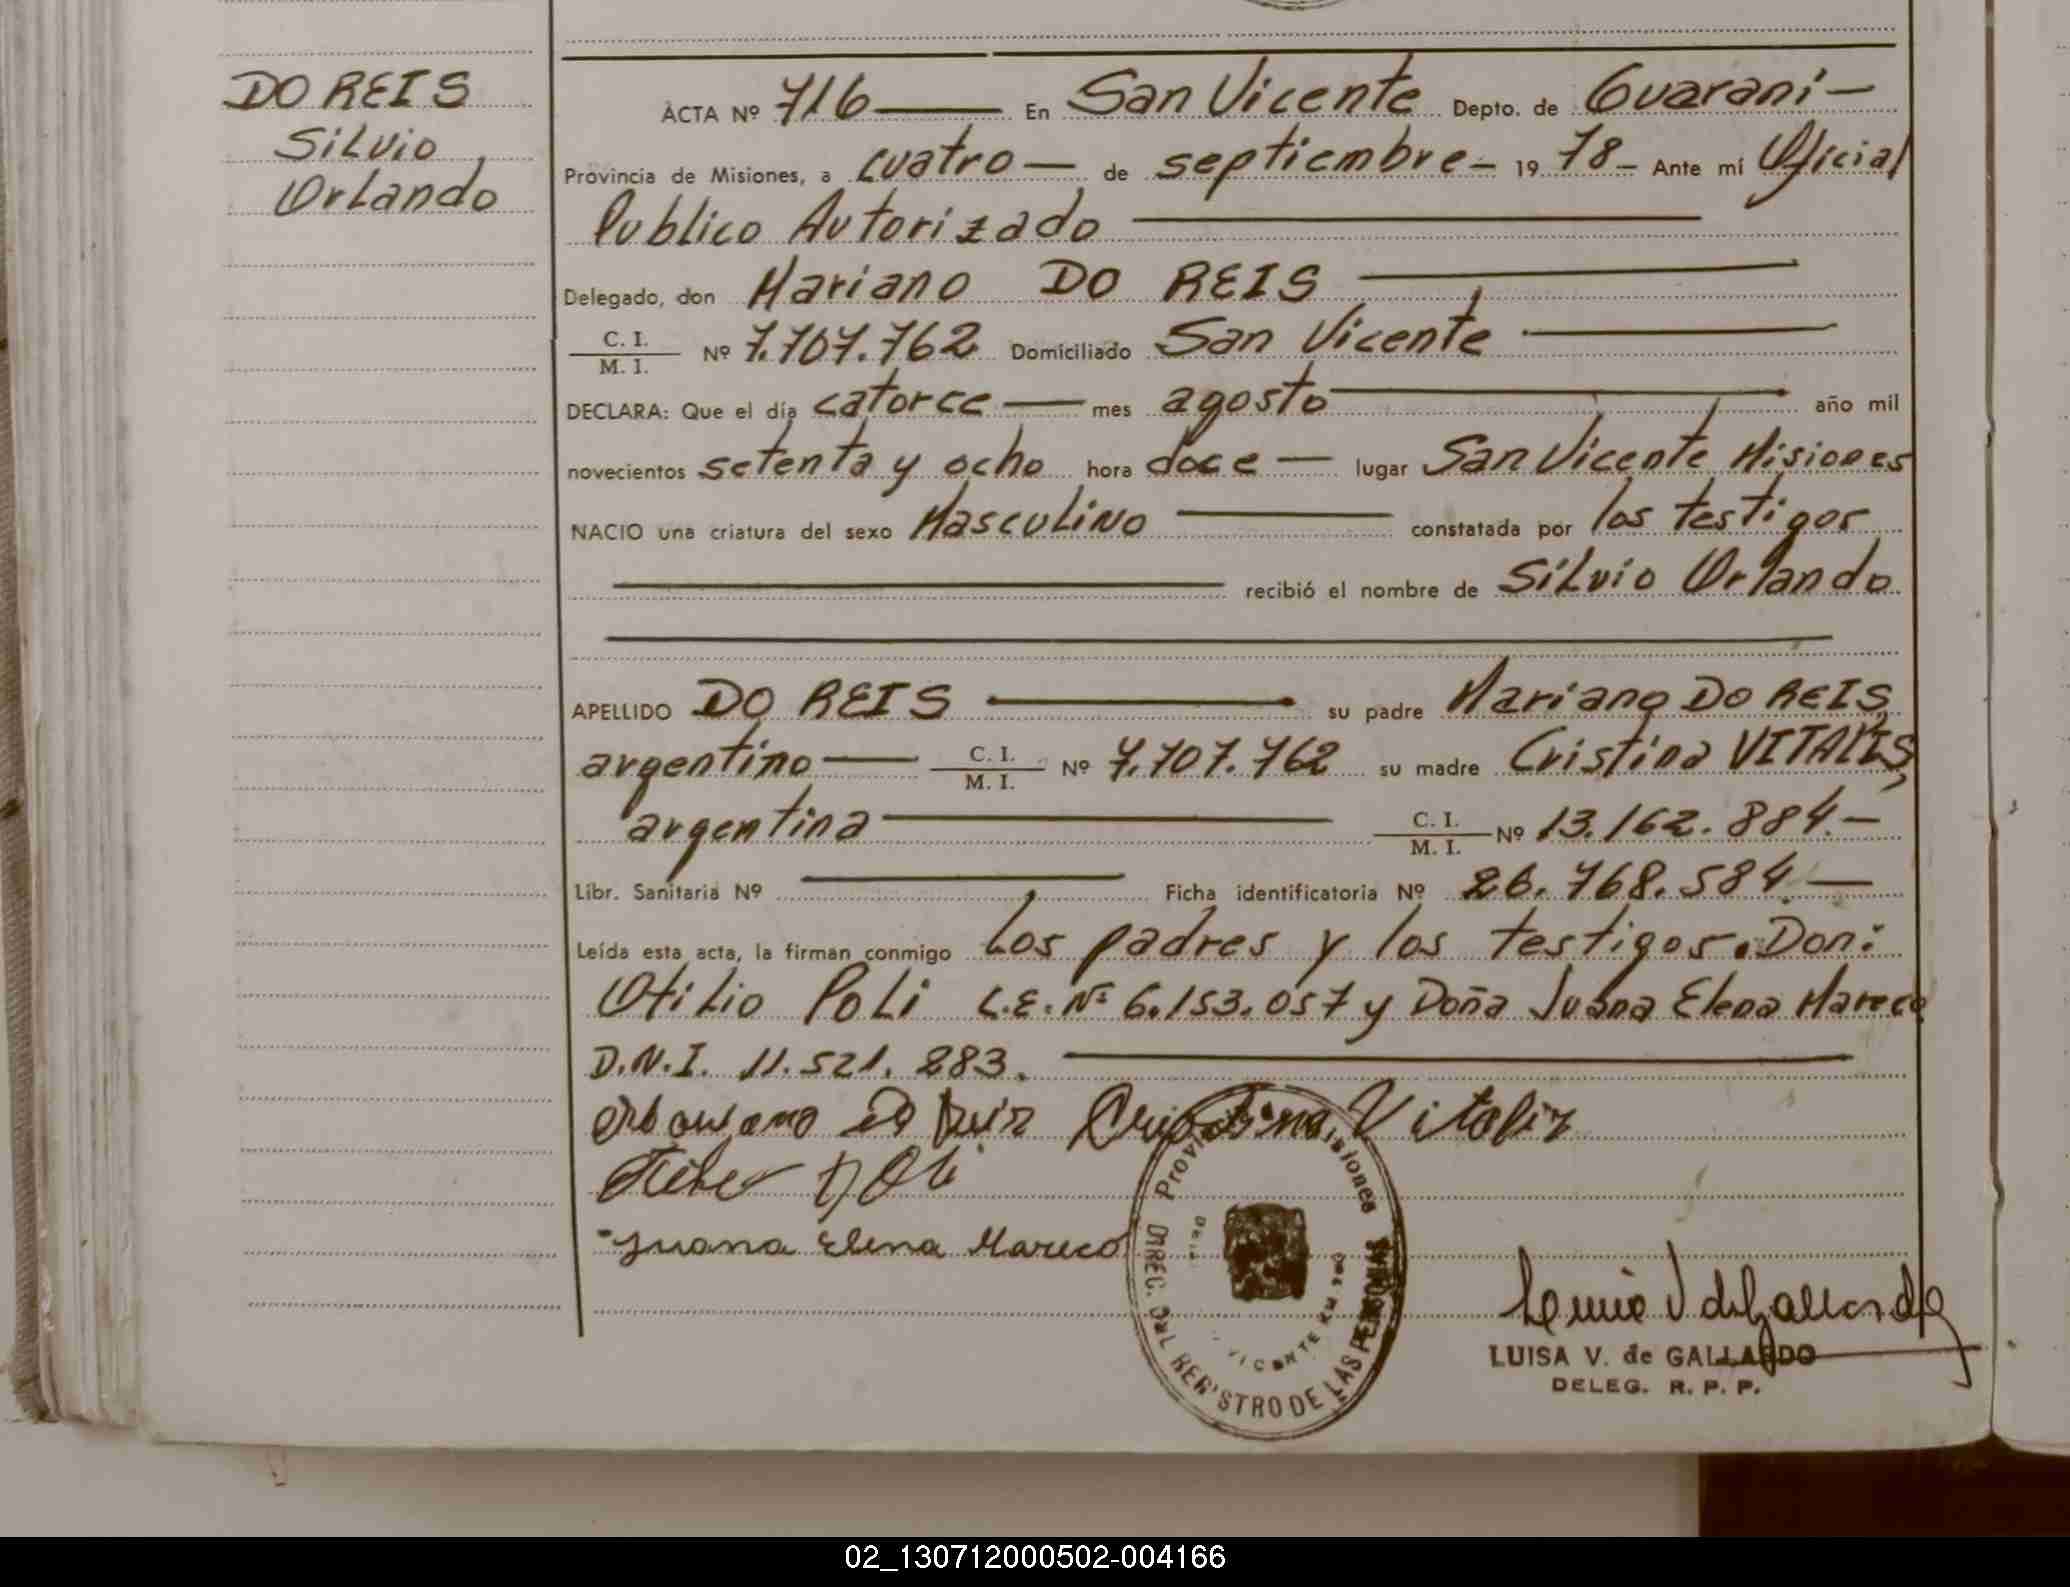 DO REIS
Silvio
Orlando
ACTA Nº 716 En San Vicente Depto. de Guaraní
Provincia de Misiones, a cuatro de septiembre 19 78 Ante mí Oficial
Publico Autorizado
Delegado, don Mariano DO REIS
C. I.
M. I. Nº 7.707.762 Domiciliado San Vicente
DECLARA: Que el día catorce mes agosto año mil
novecientos setenta y ocho hora doce lugar San Vicente Misiones
NACIO una criatura del sexo Masculino constatada por los testigos
recibió el nombre de Silvio Orlando
APELLIDO DO REIS su padre Mariano DO REIS
argentino C. I. M. I. Nº 7.707.762 su madre Cristina VITALIS,
argentina C. I. M. I. Nº 13.162.884.
Libr. Sanitaria Nº Ficha identificatoria Nº 26.768.584
Leída esta acta, la firman conmigo Los padres y los testigos. Don:
Otilio Poli L.E. Nº 6.153.057 y Doña Juana Elena Mareco
D.N.I. 11.521.283.
Cristina Vitaliz
Juana Elena Mareco
Provincia Misiones
DIREC. DEL REGISTRO DE LAS PERSONAS
VICENTE KM.
LUISA V. de GALLARDO
DELEG. R. P. P.
02_130712000502-004166